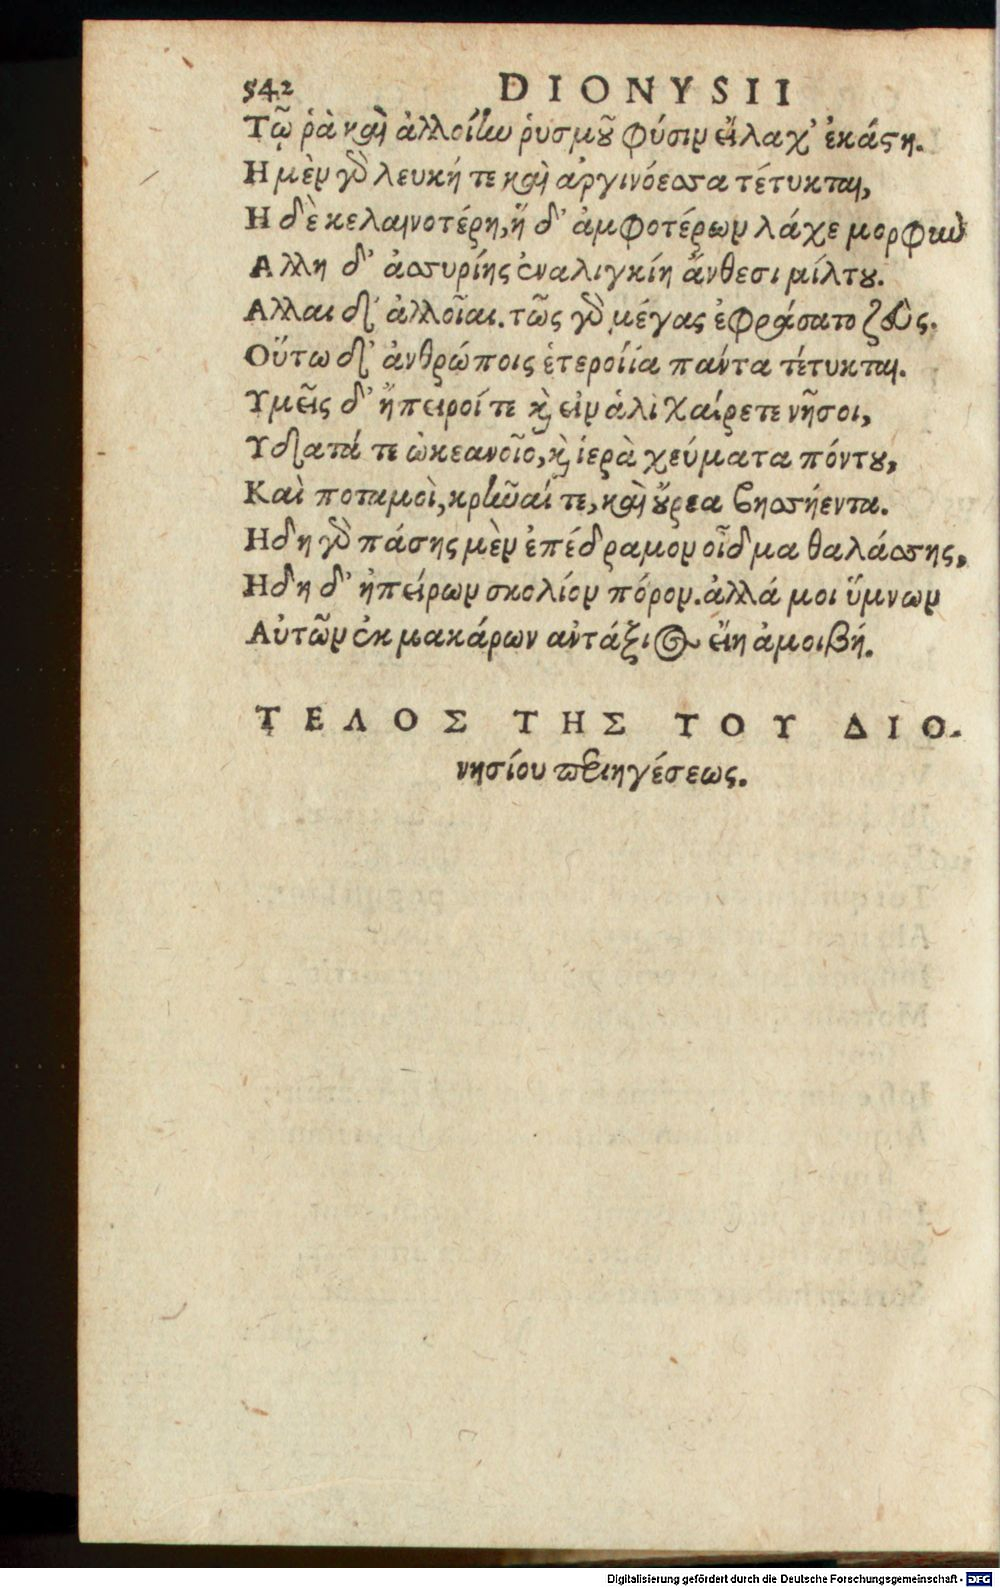 542 DIONYSII
Τῷ ῥὰ καὶ ἀλλοίην ῥυσμοῦ φύσιν εἴλαχ᾽ ἑκάστη.
Η μὲν γὸ λευκή τε καὶ ἀργινόεσσα τέτυκται,
Η δὲ κελαινοτέρη, ἥ δ᾽ ἀμφοτέρων λάχε μορφὴν
Αλλη δ᾽ ἀσσυρίης ἐναλιγκίη ἄνθεσι μίλτου.
Αλλαι δ᾽ ἀλλοῖαι. τῶς γὸ μέγας ἐφράσατο ζεὺς.
Οὕτω δ᾽ ἀνθρώποις ἑτεροίϊα πάντα τέτυκται.
Υμεῖς δ᾽ ἤπειροί τε καὶ εἰν ἁλὶ χαίρετε νῆσοι,
Υδατά τε ὠκεανοῖο, καὶ ἱερὰ χεύματα πόντου,
Καὶ ποταμοὶ, κρῆναί τε, καὶ οὔρεα βησσήεντα.
Ηδη γὸ πάσης μὲν ἐπέδραμον οἶδμα θαλάσσης,
Ηδη δ᾽ ἠπείρων σκολίον πόρον. ἀλλά μοι ὕμνων
Αὐτῶν ἐκ μακάρων ἀντάξιος εἴη ἀμοιβή.
ΤΕΛΟΣ ΤΗΣ ΤΟΥ ΔΙΟ-
νησίου περιηγέσεως.
Digitalisierung gefördert durch die Deutsche Forschungsgemeinschaft - DFG